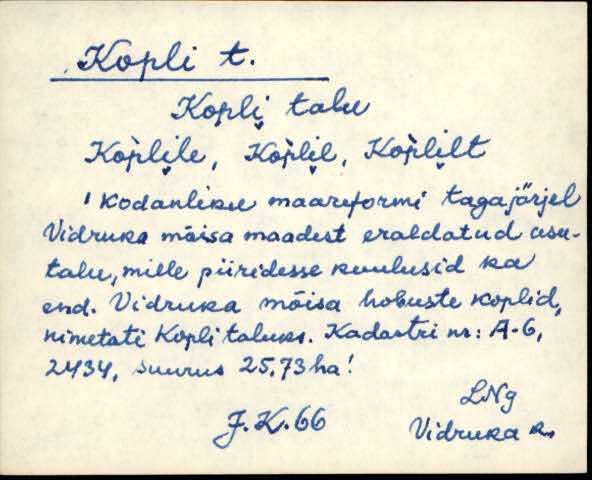 Kopli t.
Kopli talu
Kop̀lile, Kop̀lil, Kop̀lilt
! Kodanliku maareformi tagajärjel
Vidruka mõisa maadest eraldatud asu-
talu, mille piiridesse kuulusid ka
end. Vidruka mõisa hobuste koplid,
nimetati Kopli taluks. Kadastri nr: A-6,
2434, suurus 25,73 ha!
LNg
J.K.66
Vidruka k.